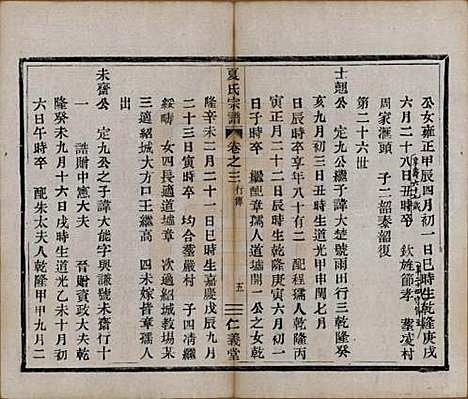 公女雍正甲辰四月初一日巳時生乾隆庚戌
六月二十八日丑時卒 欽旌節孝 葬凌村
周家滙頭 子二韶泰韶復
第二十六世
士翹公 定九公繼子諱大楚號雨田行三乾隆癸
亥九月初三日丑時生道光甲申閏七月
日辰時卒享年八十有二 配程孺人乾隆丙
寅正月二十二日辰時生乾隆庚寅六月初一
日子時卒 繼配章孺人道墟開一公之女乾
夏氏宗譜
卷之三
行傳
五
仁義堂
隆辛未二月二十一日巳時生嘉慶戊辰九月
二十三日寅時卒 均合葬嚴村 子四凊綱
綏疇 女四長適道墟章 次適紹城教場某
三適紹城大方口王繼高 四未嫁皆章孺人
出
未齋公 定九公之子諱大能字興謙號未齋行十
一 誥贈中憲大夫 晉贈資政大夫乾
隆癸未十月初八日戌時生道光乙未十月初
六日午時卒 配朱太夫人乾隆甲申九月二